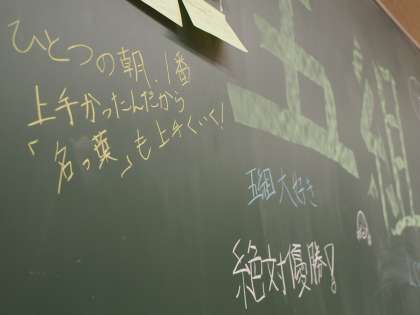 ひとつの朝、1番
上手かったんだから
「名づ葉」も上手くいく！
五組
五組大好き
絶対優勝！